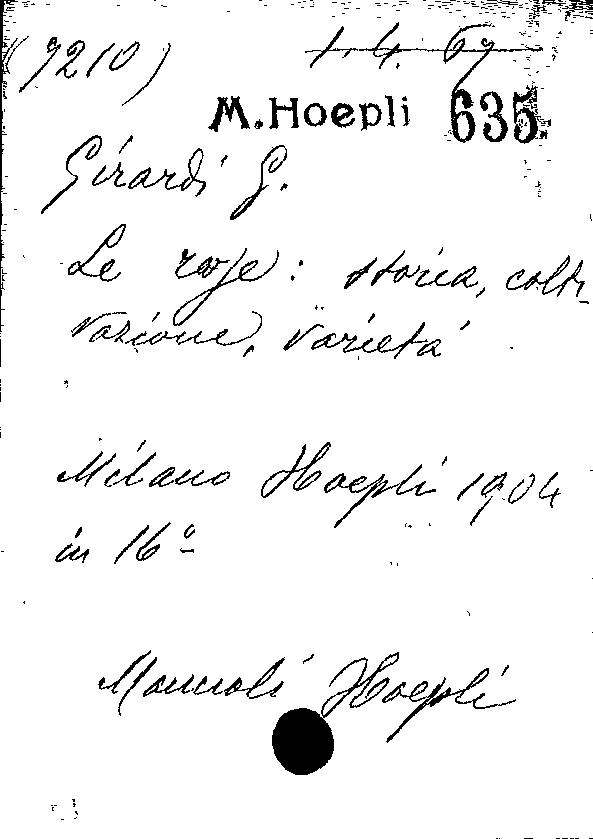 (7210) 1.4.67
M.Hoepli 635.
Girardi G.
Le rose: storia, colti-
vazione, varietà
Milano Hoepli 1904
in 16°
Manuali Hoepli